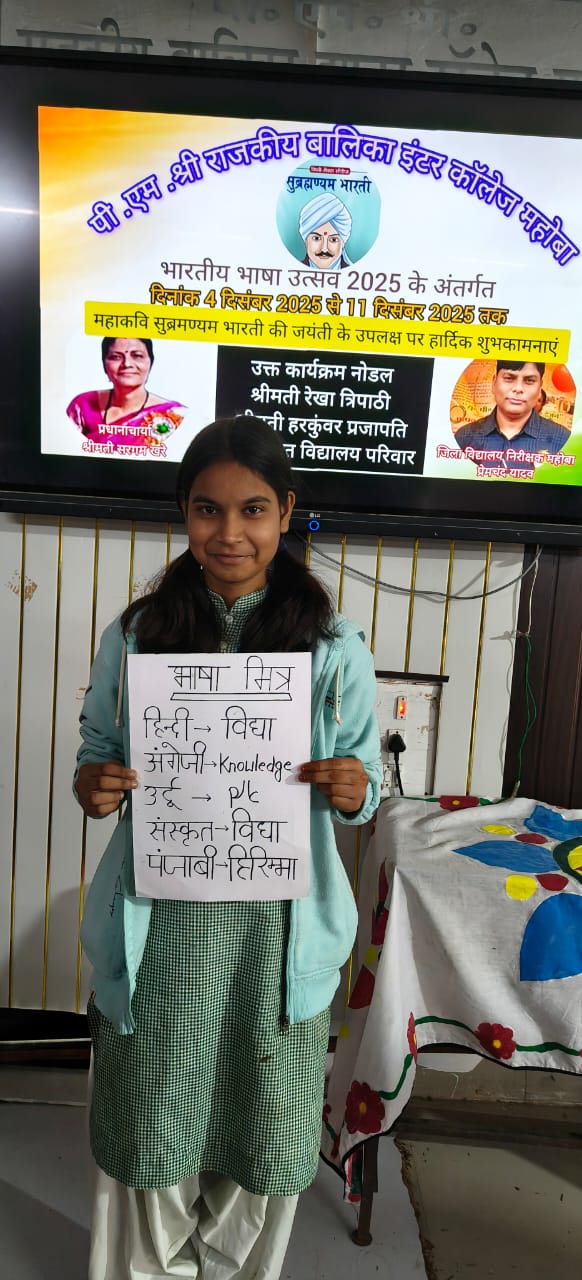 पी .एम .श्री राजकीय बालिका इंटर कॉलेज महोबा
सुब्रह्मण्यम भारती
भारतीय भाषा उत्सव 2025 के अंतर्गत
दिनांक 4 दिसंबर 2025 से 11 दिसंबर 2025 तक
महाकवि सुब्रमण्यम भारती की जयंती के उपलक्ष पर हार्दिक शुभकामनाएं
उक्त कार्यक्रम नोडल
श्रीमती रेखा त्रिपाठी
हरकुंवर प्रजापति
विद्यालय परिवार
प्रधानाचार्या
श्रीमती सरगम खरे
जिला विद्यालय निरीक्षक महोबा
प्रेमचंद यादव
LG
भाषा मित्र
हिन्दी → विद्या
अंग्रेजी → Knowledge
उर्दू →
संस्कृत → विद्या
पंजाबी → हिरिम्मा